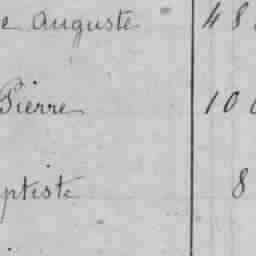 e Auguste 48
Pierre 10
ptiste 8